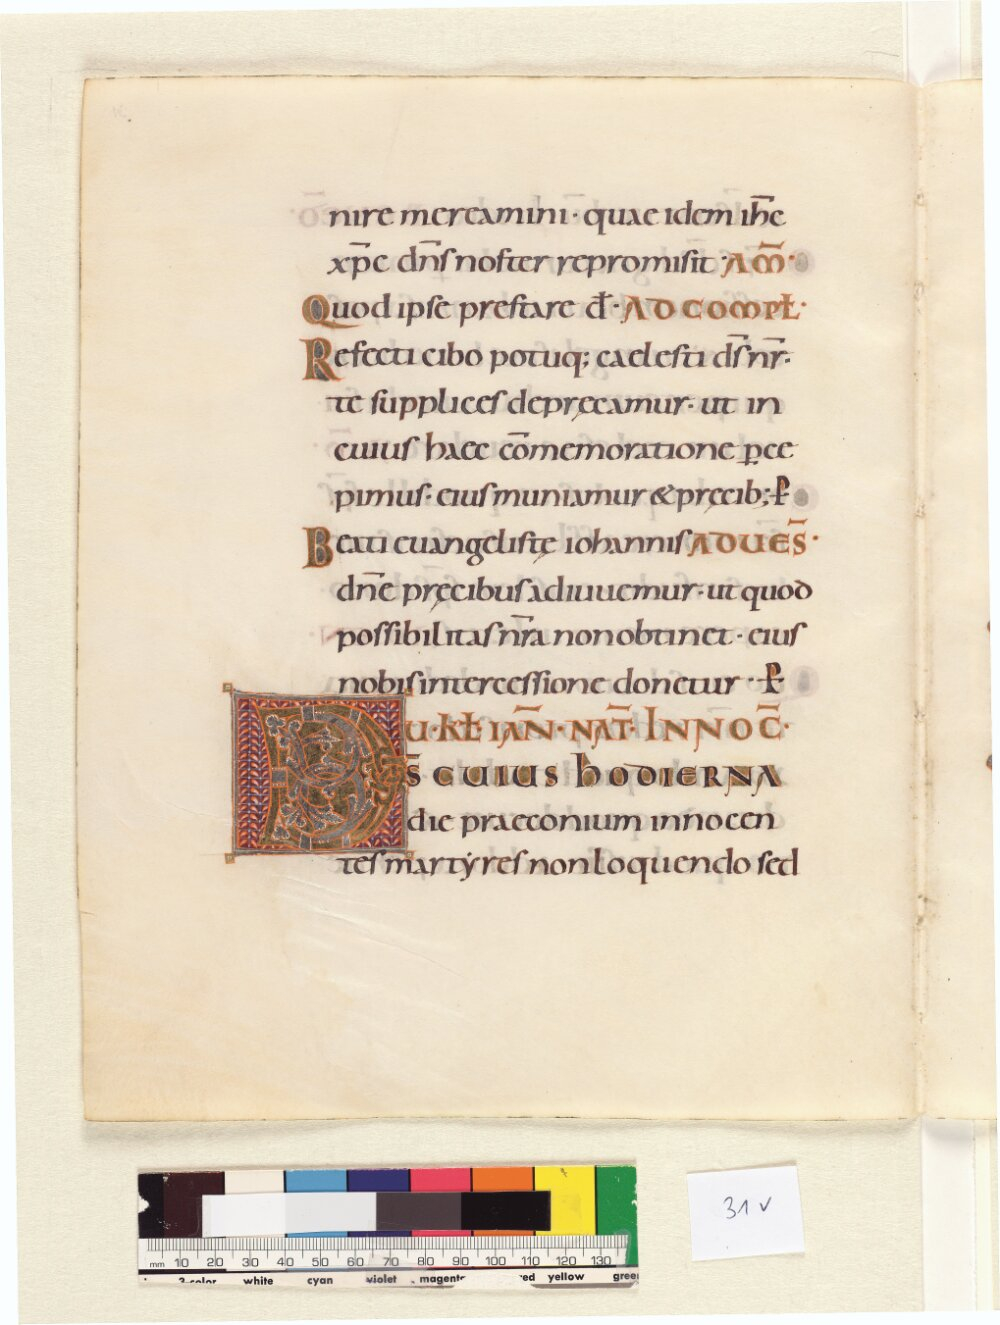 nire mereamini · quae idem ih̄c
xp̄c dn̄s noster repromisit · AM̄ ·
Quod ipse prestare đ · AD COMPŁ ·
Refecti cibo potuq; caelesti ds̄ nr̄ ·
te supplices depręcamur · ut in
cuius haec cōmemoratione p̲ce
pimus · eius muniamur & pręcib; · P̵
Beati euangelistę iohannis AD UES̄ ·
dn̄e pręcibus adiuuemur · ut quod
possibilitas nr̄a non obtinet · eius
nobis intercessione donetur · · P̵
U · KŁ IAN̄ · NAT̄ · INNOC̄ ·
DS̄ CUIUS HODIERNA
die praeconium innocen
tes martẏres non loquendo sed
31 v
mm 10 20 30 40 50 60 70 80 90 100 110 120 130
3-color white cyan violet magenta red yellow green